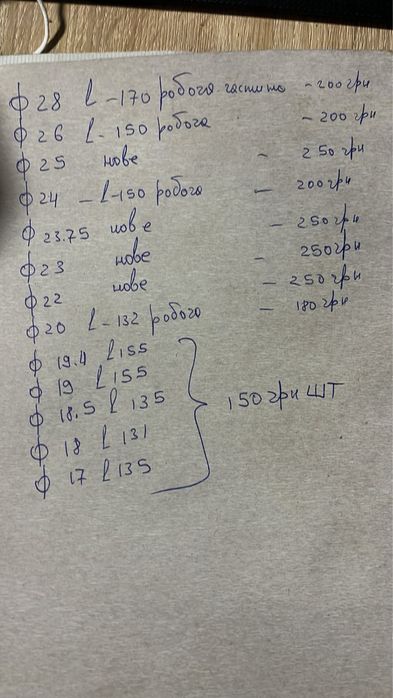 ф 28 l -170 робоча частина - 200 грн
ф 26 l - 150 робоча - 200 грн
ф 25 нове - 250 грн
ф 24 - l-150 робоча - 200 грн
ф 23.75 нове - 250 грн
ф 23 нове - 250 грн
ф 22 нове - 250 грн
ф 20 l -132 робоча - 180 грн
ф 19.4 l 155
ф 19 l 155
ф 18.5 l 135
ф 18 l 131
ф 17 l 135
150 грн ШТ